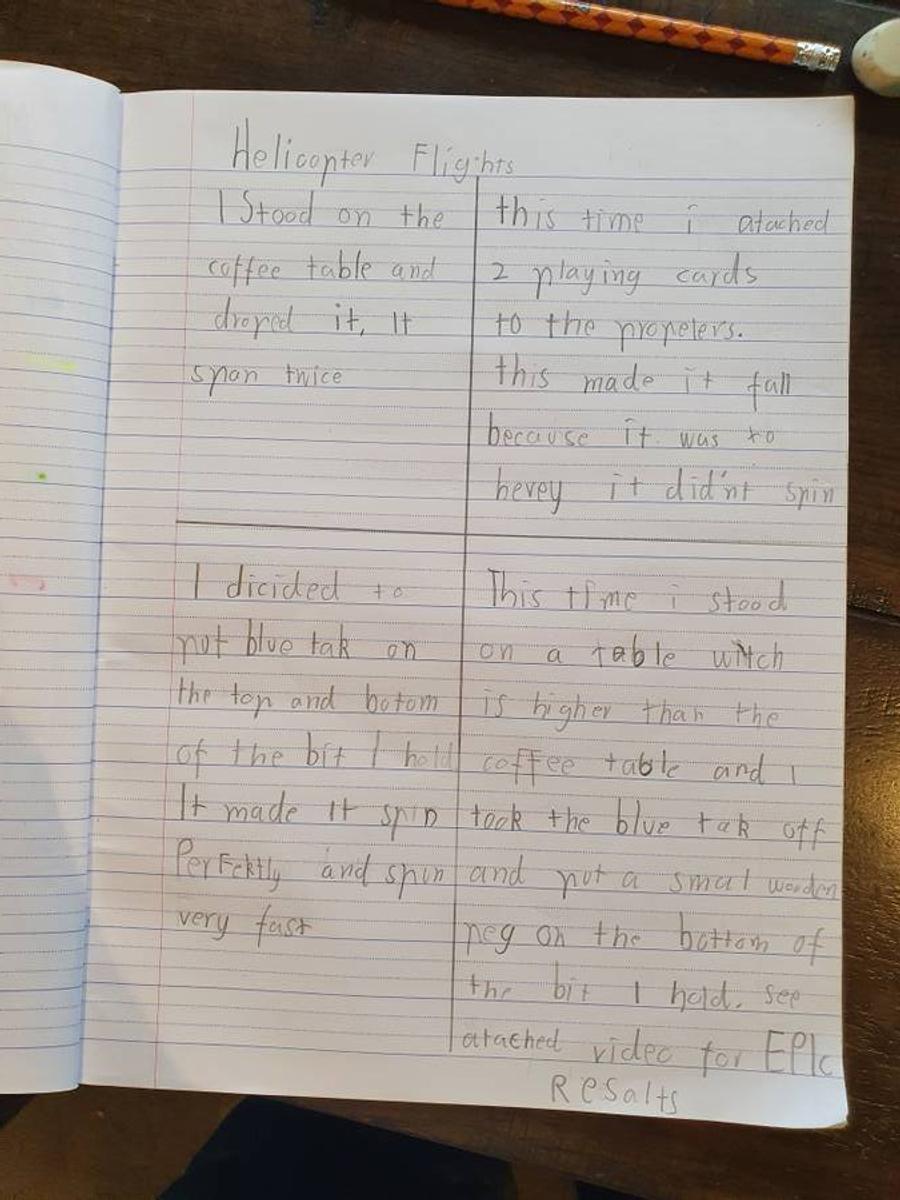 Helicopter Flights
I Stood on the
coffee table and
droped it, It
span twice
this time i atached
2 playing cards
to the propelers.
this made it fall
because it was to
hevey it did'nt spin
I dicided to
put blue tak on
the top and botom
of the bit I hold
It made It spin
Perfektly and spun
very fast
This time i stood
on a table witch
is higher than the
coffee table and I
took the blue tak off
and put a smal wooden
peg on the bottom of
the bit I hold. see
atached video for EPIc
Resalts